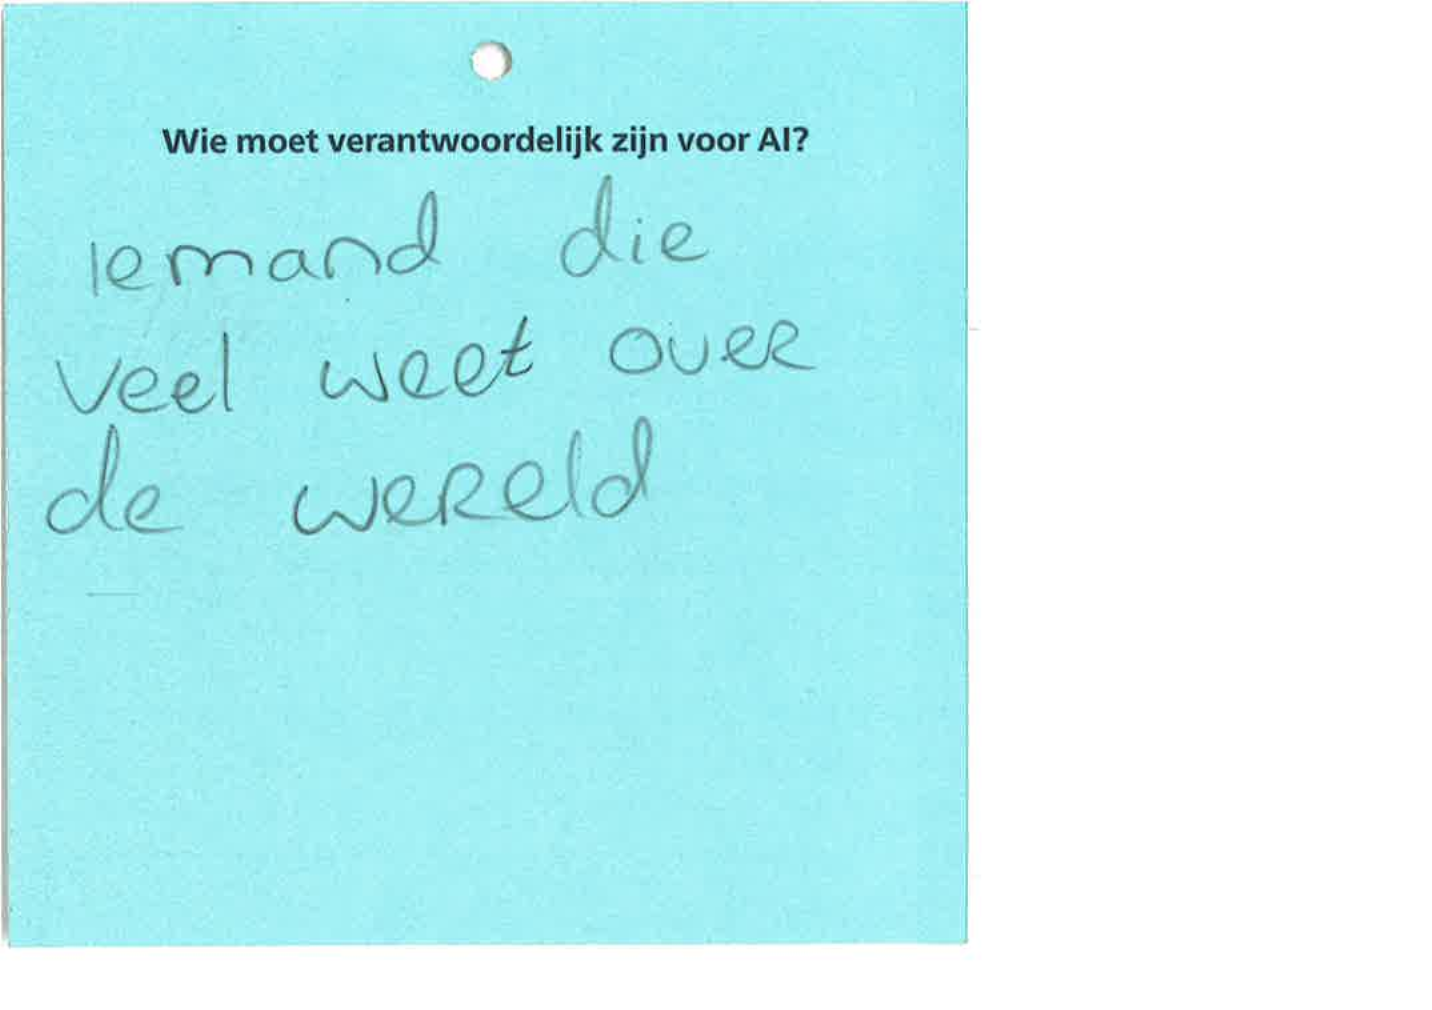 Wie moet verantwoordelijk zijn voor AI?
Iemand die
veel weet over
de wereld